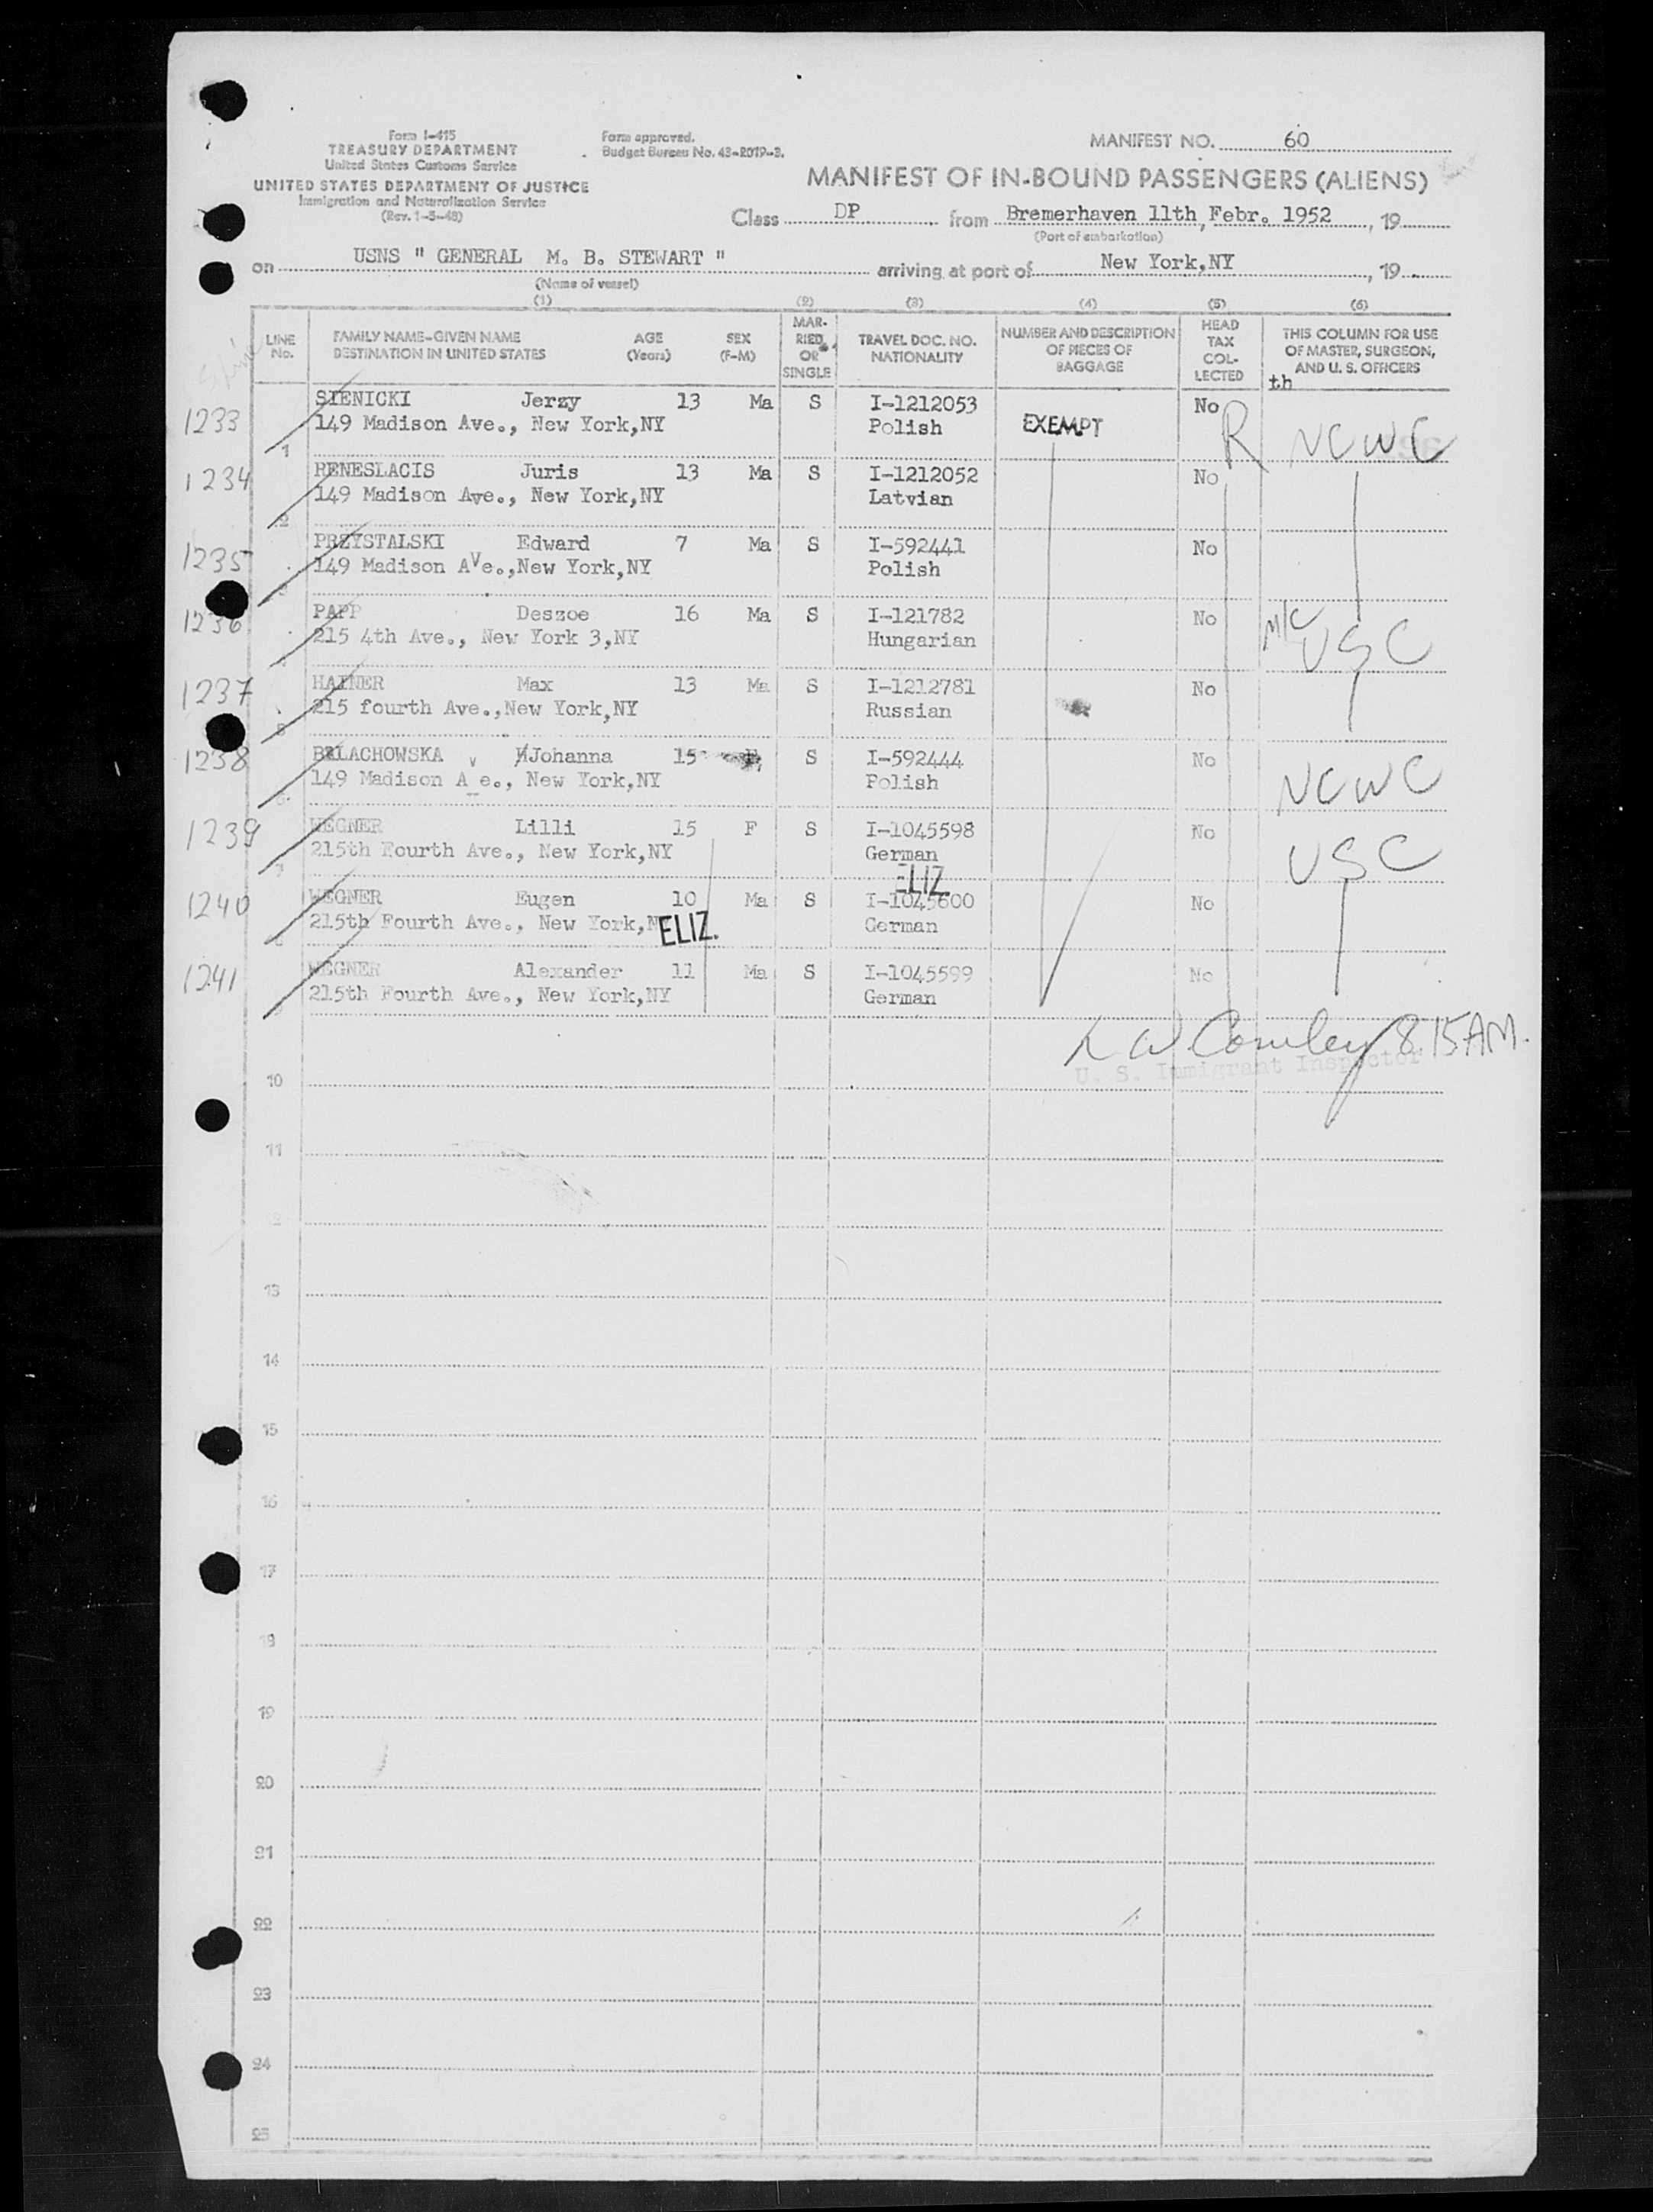 Form I-415
TREASURY DEPARTMENT
United States Customs Service
UNITED STATES DEPARTMENT OF JUSTICE
Immigration and Naturalization Service
(Rev. 1-5-48)
Form approved.
Budget Bureau No. 43-R019-3.
MANIFEST NO. 60
MANIFEST OF IN-BOUND PASSENGERS (ALIENS)
Class DP from Bremerhaven 11th, Febr. 1952, 19
(Port of embarkation)
on USNS " GENERAL M. B. STEWART " arriving at port of New York,NY, 19
(Name of vessel)
(1) (2) (3) (4) (5) (6)
LINE No.
FAMILY NAME-GIVEN NAME DESTINATION IN UNITED STATES
AGE (Years)
SEX (F-M)
MAR- RIED OR SINGLE
TRAVEL DOC. NO. NATIONALITY
NUMBER AND DESCRIPTION OF PIECES OF BAGGAGE
HEAD TAX COL- LECTED
THIS COLUMN FOR USE OF MASTER, SURGEON, AND U. S. OFFICERS
th
1233 SIENICKI Jerzy 13 Ma S I-1212053 EXEMPT No R NCWC
1 149 Madison Ave., New York,NY Polish
1234 RENESLACIS Juris 13 Ma S I-1212052 No
2 149 Madison Ave., New York,NY Latvian
1235 PRZYSTALSKI Edward 7 Ma S I-592441 No
3 149 Madison Ave.,New York,NY Polish
1236 PAPP Deszoe 16 Ma S I-121782 No M/C USC
4 215 4th Ave., New York 3,NY Hungarian
1237 HAINER Max 13 Ma S I-1212781 No
5 215 fourth Ave.,New York,NY Russian
1238 BALACHOWSKA v Johanna 15 F S I-592444 No NCWC
6 149 Madison A e., New York,NY Polish
1239 WEGNER Lilli 15 F S I-1045598 No USC
7 215th Fourth Ave., New York,NY German
ELIZ.
1240 WEGNER Eugen 10 Ma S I-1045600 No
8 215th Fourth Ave., New York,NY ELIZ. German
1241 WEGNER Alexander 11 Ma S I-1045599 No
9 215th Fourth Ave., New York,NY German
8 15 AM.
U. S. Immigrant Inspector
10
11
12
13
14
15
16
17
18
19
20
21
22
23
24
25